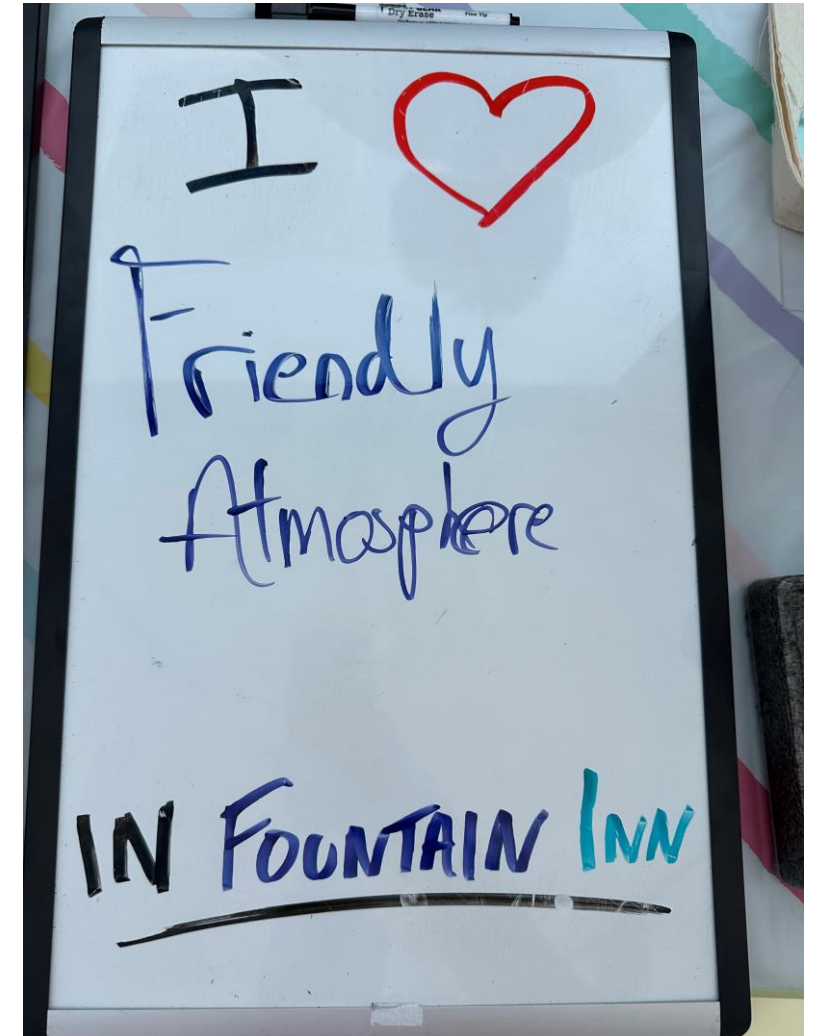 Dry Erase Fine Tip
I ♥
Friendly
Atmosphere
IN FOUNTAIN INN